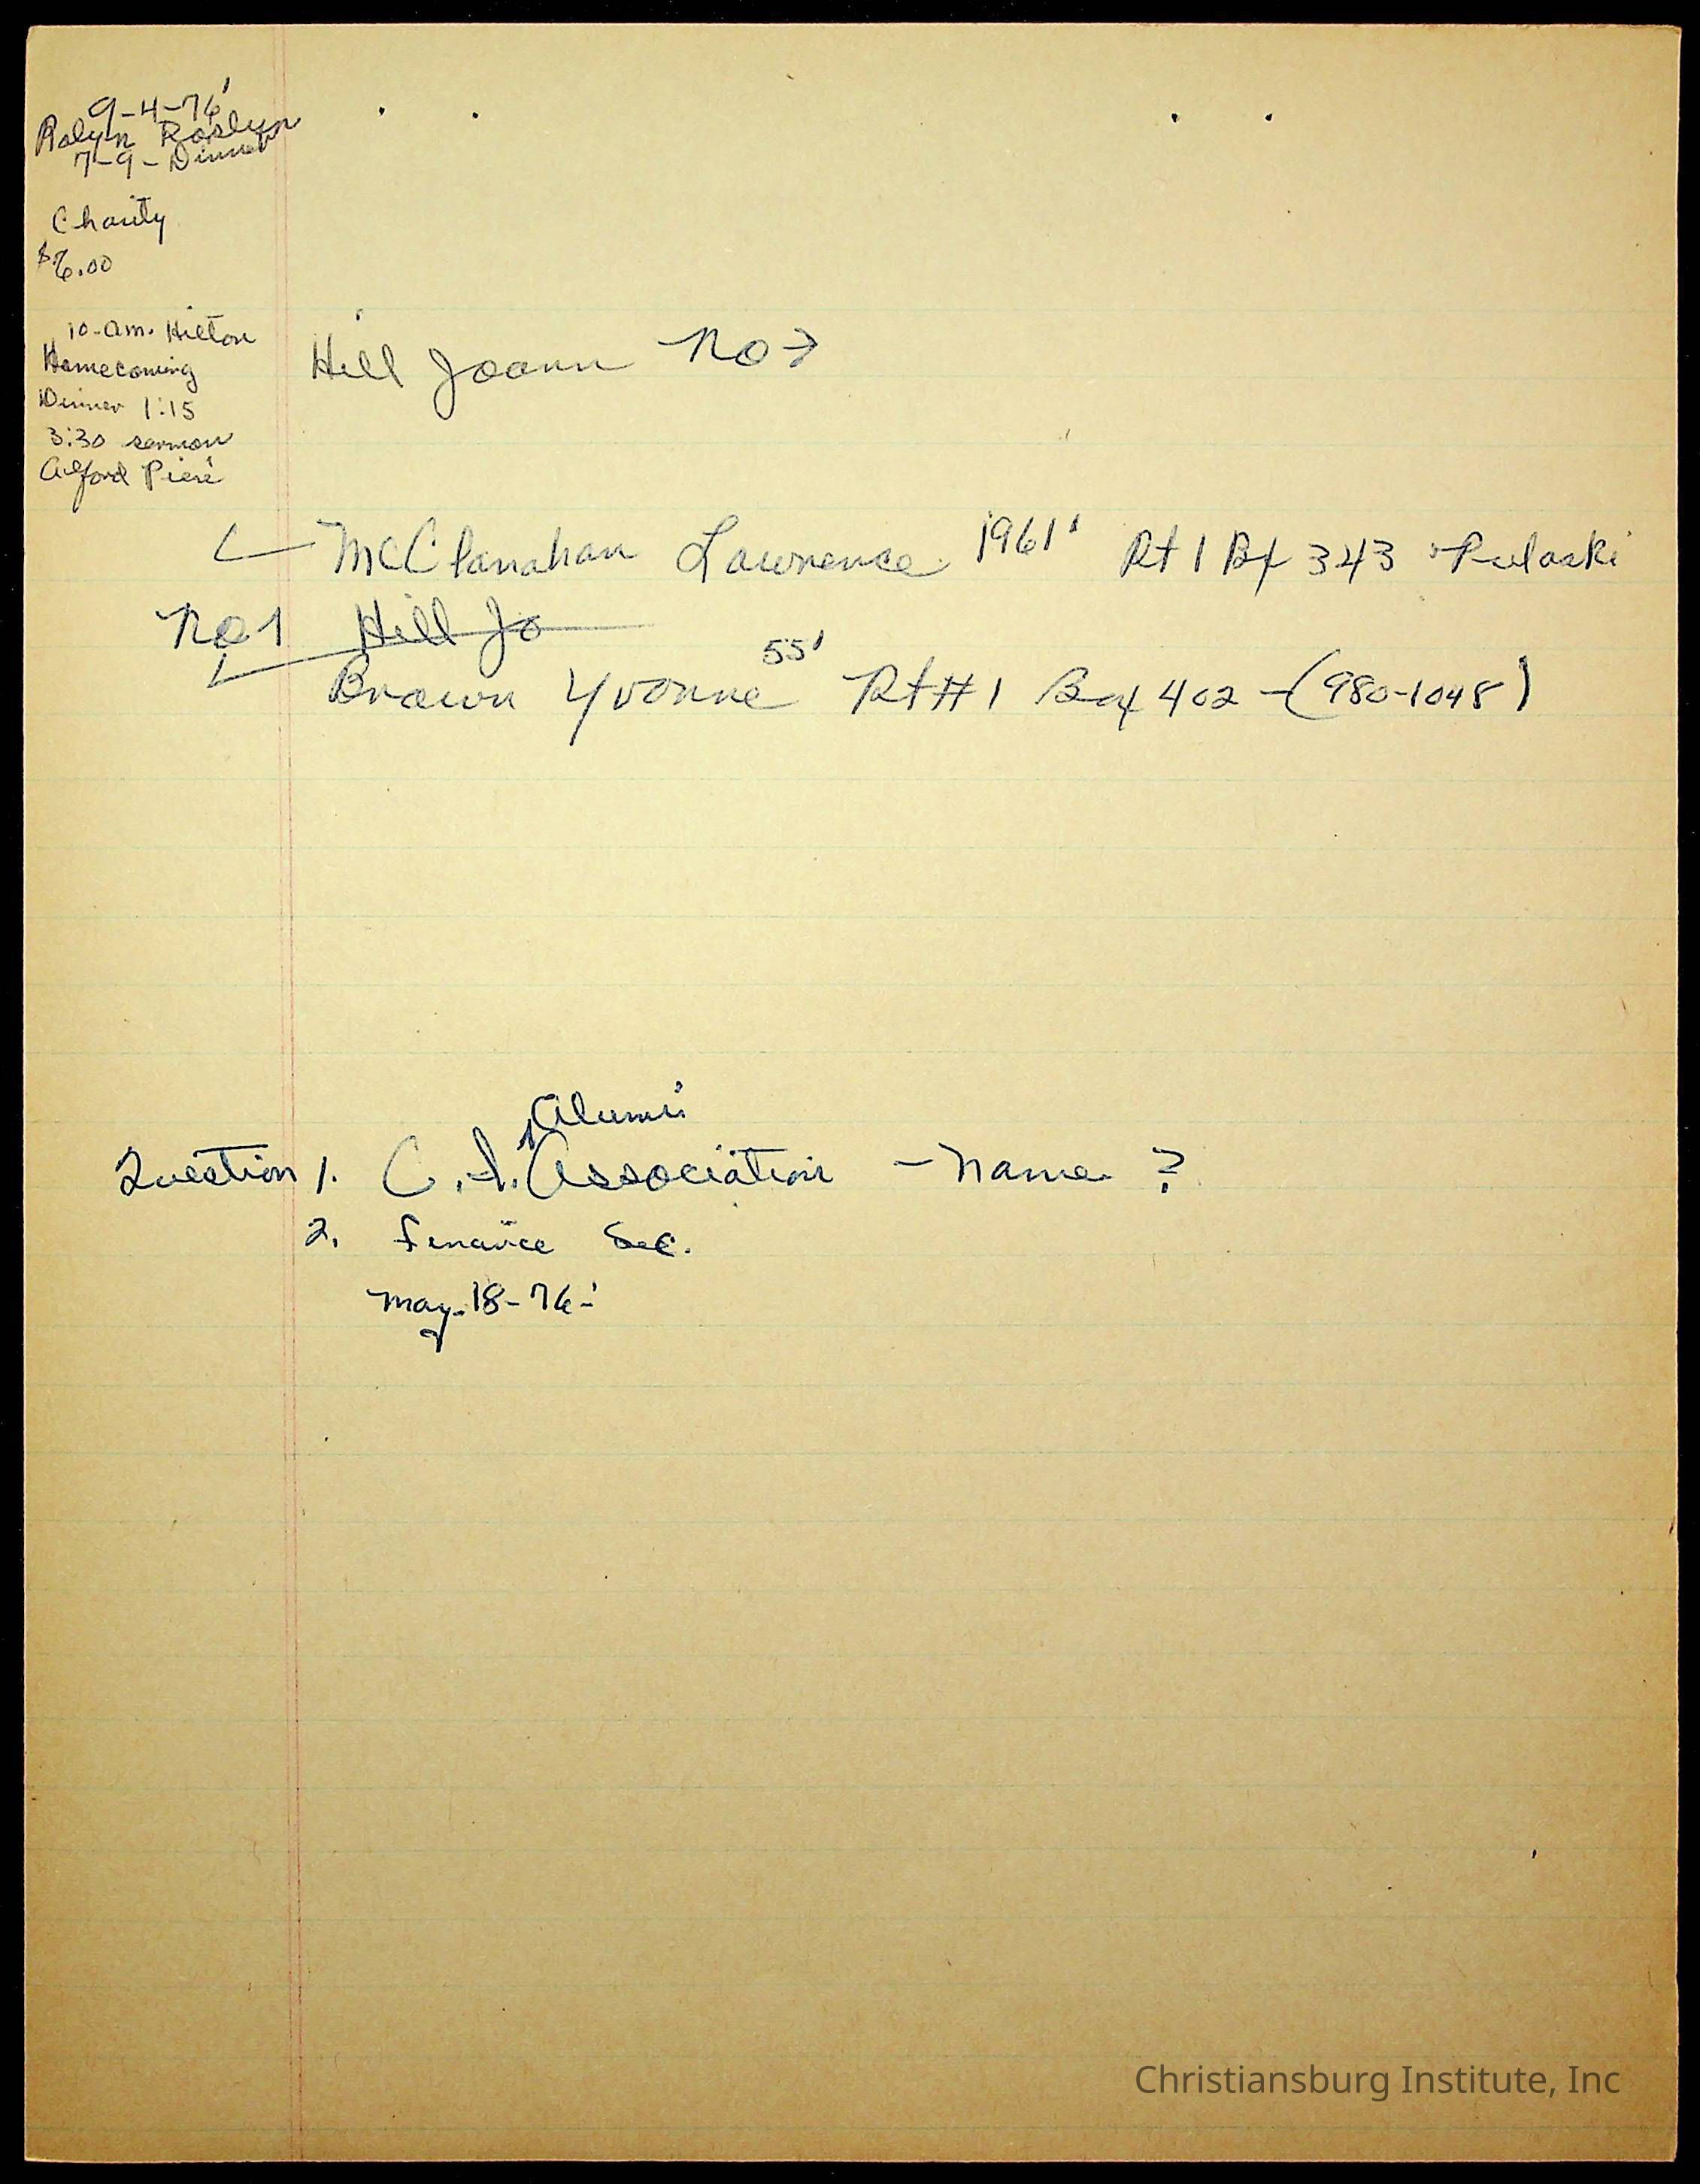 9-4-76'
Roslyn
7-9-Dinner
Charity
10-am. Hilton
Homecoming
Dinner 1:15
3:30 sermon
Hill Joann No →
McClanahan Lawrence 1961' Rt 1 Bx 343 Pulaski
Hill Jo
55'
Brown Yvonne Rt #1 Box 402 - (980-1048)
Alumni
Question 1. C.I. Association - Name ?
2. Finance Sec.
May-18-76-'
Christiansburg Institute, Inc